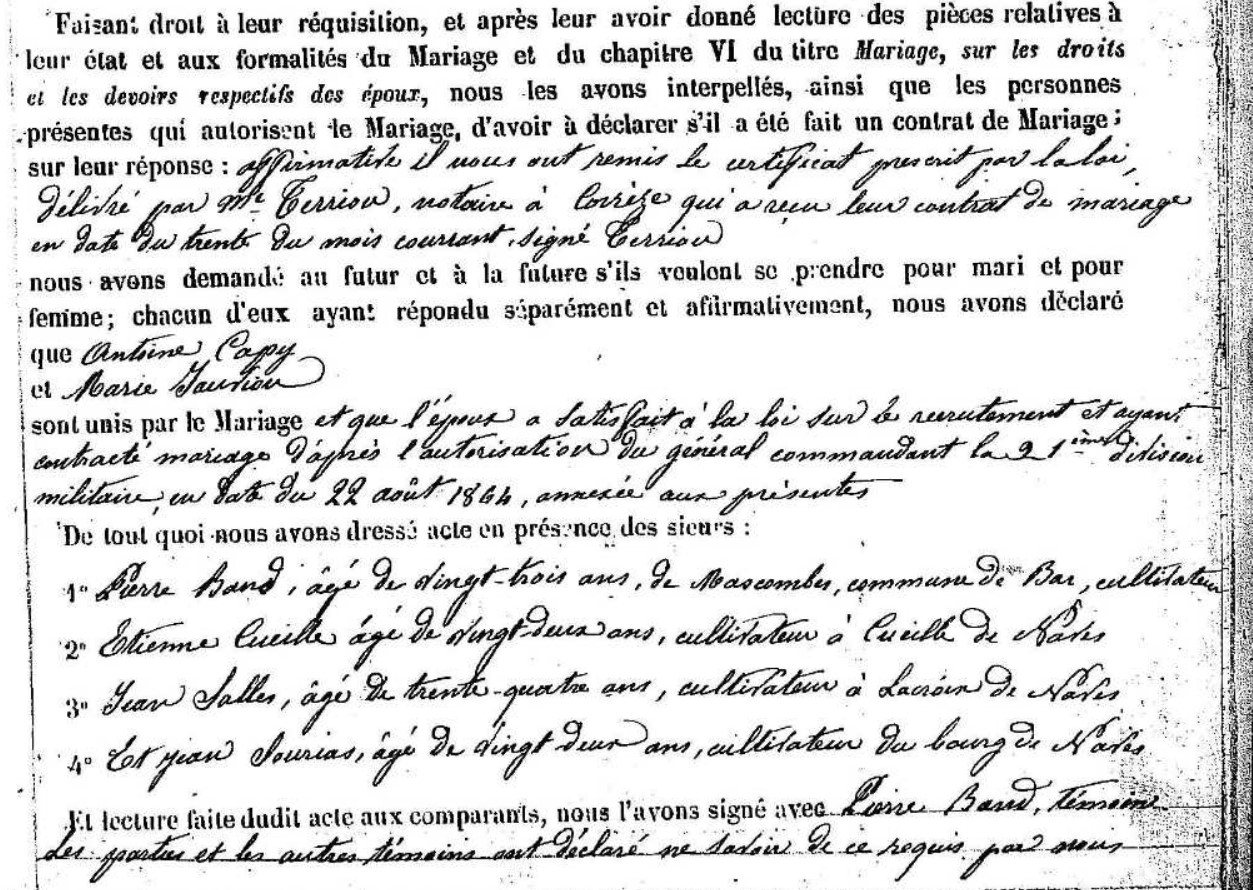 Faisant droit à leur réquisition, et après leur avoir donné lecture des pièces relatives à
leur état et aux formalités du Mariage et du chapitre VI du titre Mariage, sur les droits
et les devoirs respectifs des époux, nous les avons interpellés, ainsi que les personnes
présentes qui autorisent le Mariage, d'avoir à déclarer s'il a été fait un contrat de Mariage ;
sur leur réponse : affirmative il nous ont remis le certificat prescrit par la loi,
délivré par Me Terriou, notaire à Corrèze qui a reçu leur contrat de mariage
en date du trente du mois courrant, signé Terriou
nous avons demandé au futur et à la future s'ils veulent se prendre pour mari et pour
femme ; chacun d'eux ayant répondu séparément et affirmativement, nous avons déclaré
que Antoine Capy
et Marie
sont unis par le Mariage et que l'époux a satisfait à la loi sur le recrutement et ayant
contracté mariage d'après l'autorisation du général commandant la 21ième division
militaire, en date du 22 août 1864, annexée aux présentes
De tout quoi nous avons dressé acte en présence des sieurs :
1° Pierre Band, âgé de vingt-trois ans, de Mascombes, commune de Bar, cultivateur
2° Etienne Cueille âgé de vingt-deux ans, cultivateur à Cueille de Naves
3° Jean Salles, âgé de trente-quatre ans, cultivateur à Lacroix de Naves
4° Et jean Sourias, âgé de vingt deux ans, cultivateur du bourg de Naves
Et lecture faite dudit acte aux comparants, nous l'avons signé avec Pierre Band, témoin
Les parties et les autres témoins ont déclaré ne savoir de ce requis par nous